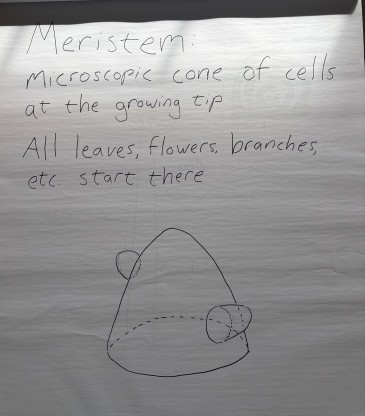 Meristem:
Microscopic cone of cells
at the growing tip
All leaves, flowers, branches,
etc. start there